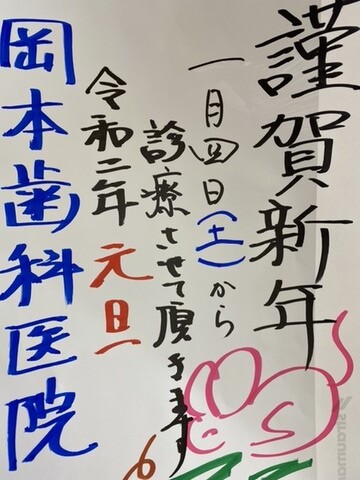 謹賀新年
一月四日(土)から
診療させて頂きます
令和二年 元旦
岡本歯科医院
straumann